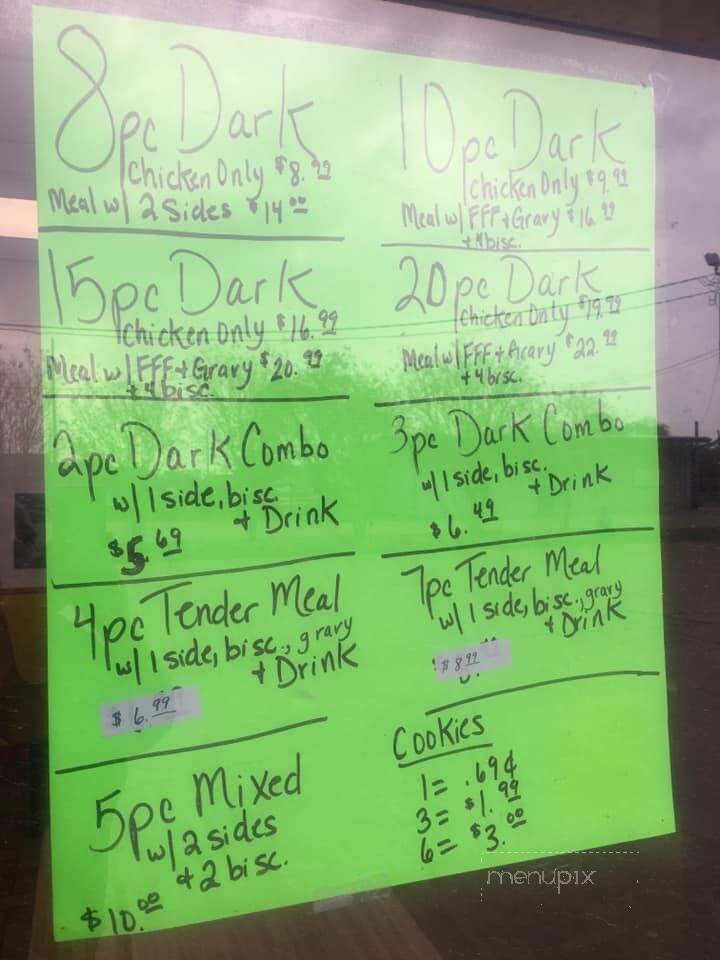 8pc Dark
Chicken Only $8.99
Meal w/ 2 Sides $14.00
10pc Dark
Chicken Only $9.99
Meal w/ FFF + Gravy $16.99
+ 4 bisc.
15pc Dark
Chicken Only $16.99
Meal w/ FFF + Gravy $20.99
+ 4 bisc.
20pc Dark
Chicken Only $19.99
Meal w/ FFF + Gravy $22.99
+ 4 bisc.
2pc Dark Combo
w/ 1 side, bisc.
+ Drink
$5.69
3pc Dark Combo
w/ 1 side, bisc.
+ Drink
$6.49
4pc Tender Meal
w/ 1 side, bisc., gravy
+ Drink
$6.99
7pc Tender Meal
w/ 1 side, bisc., gravy
+ Drink
$8.99
5pc Mixed
w/ 2 sides
+ 2 bisc.
$10.00
Cookies
1 = .69¢
3 = $1.99
6 = $3.00
menupix